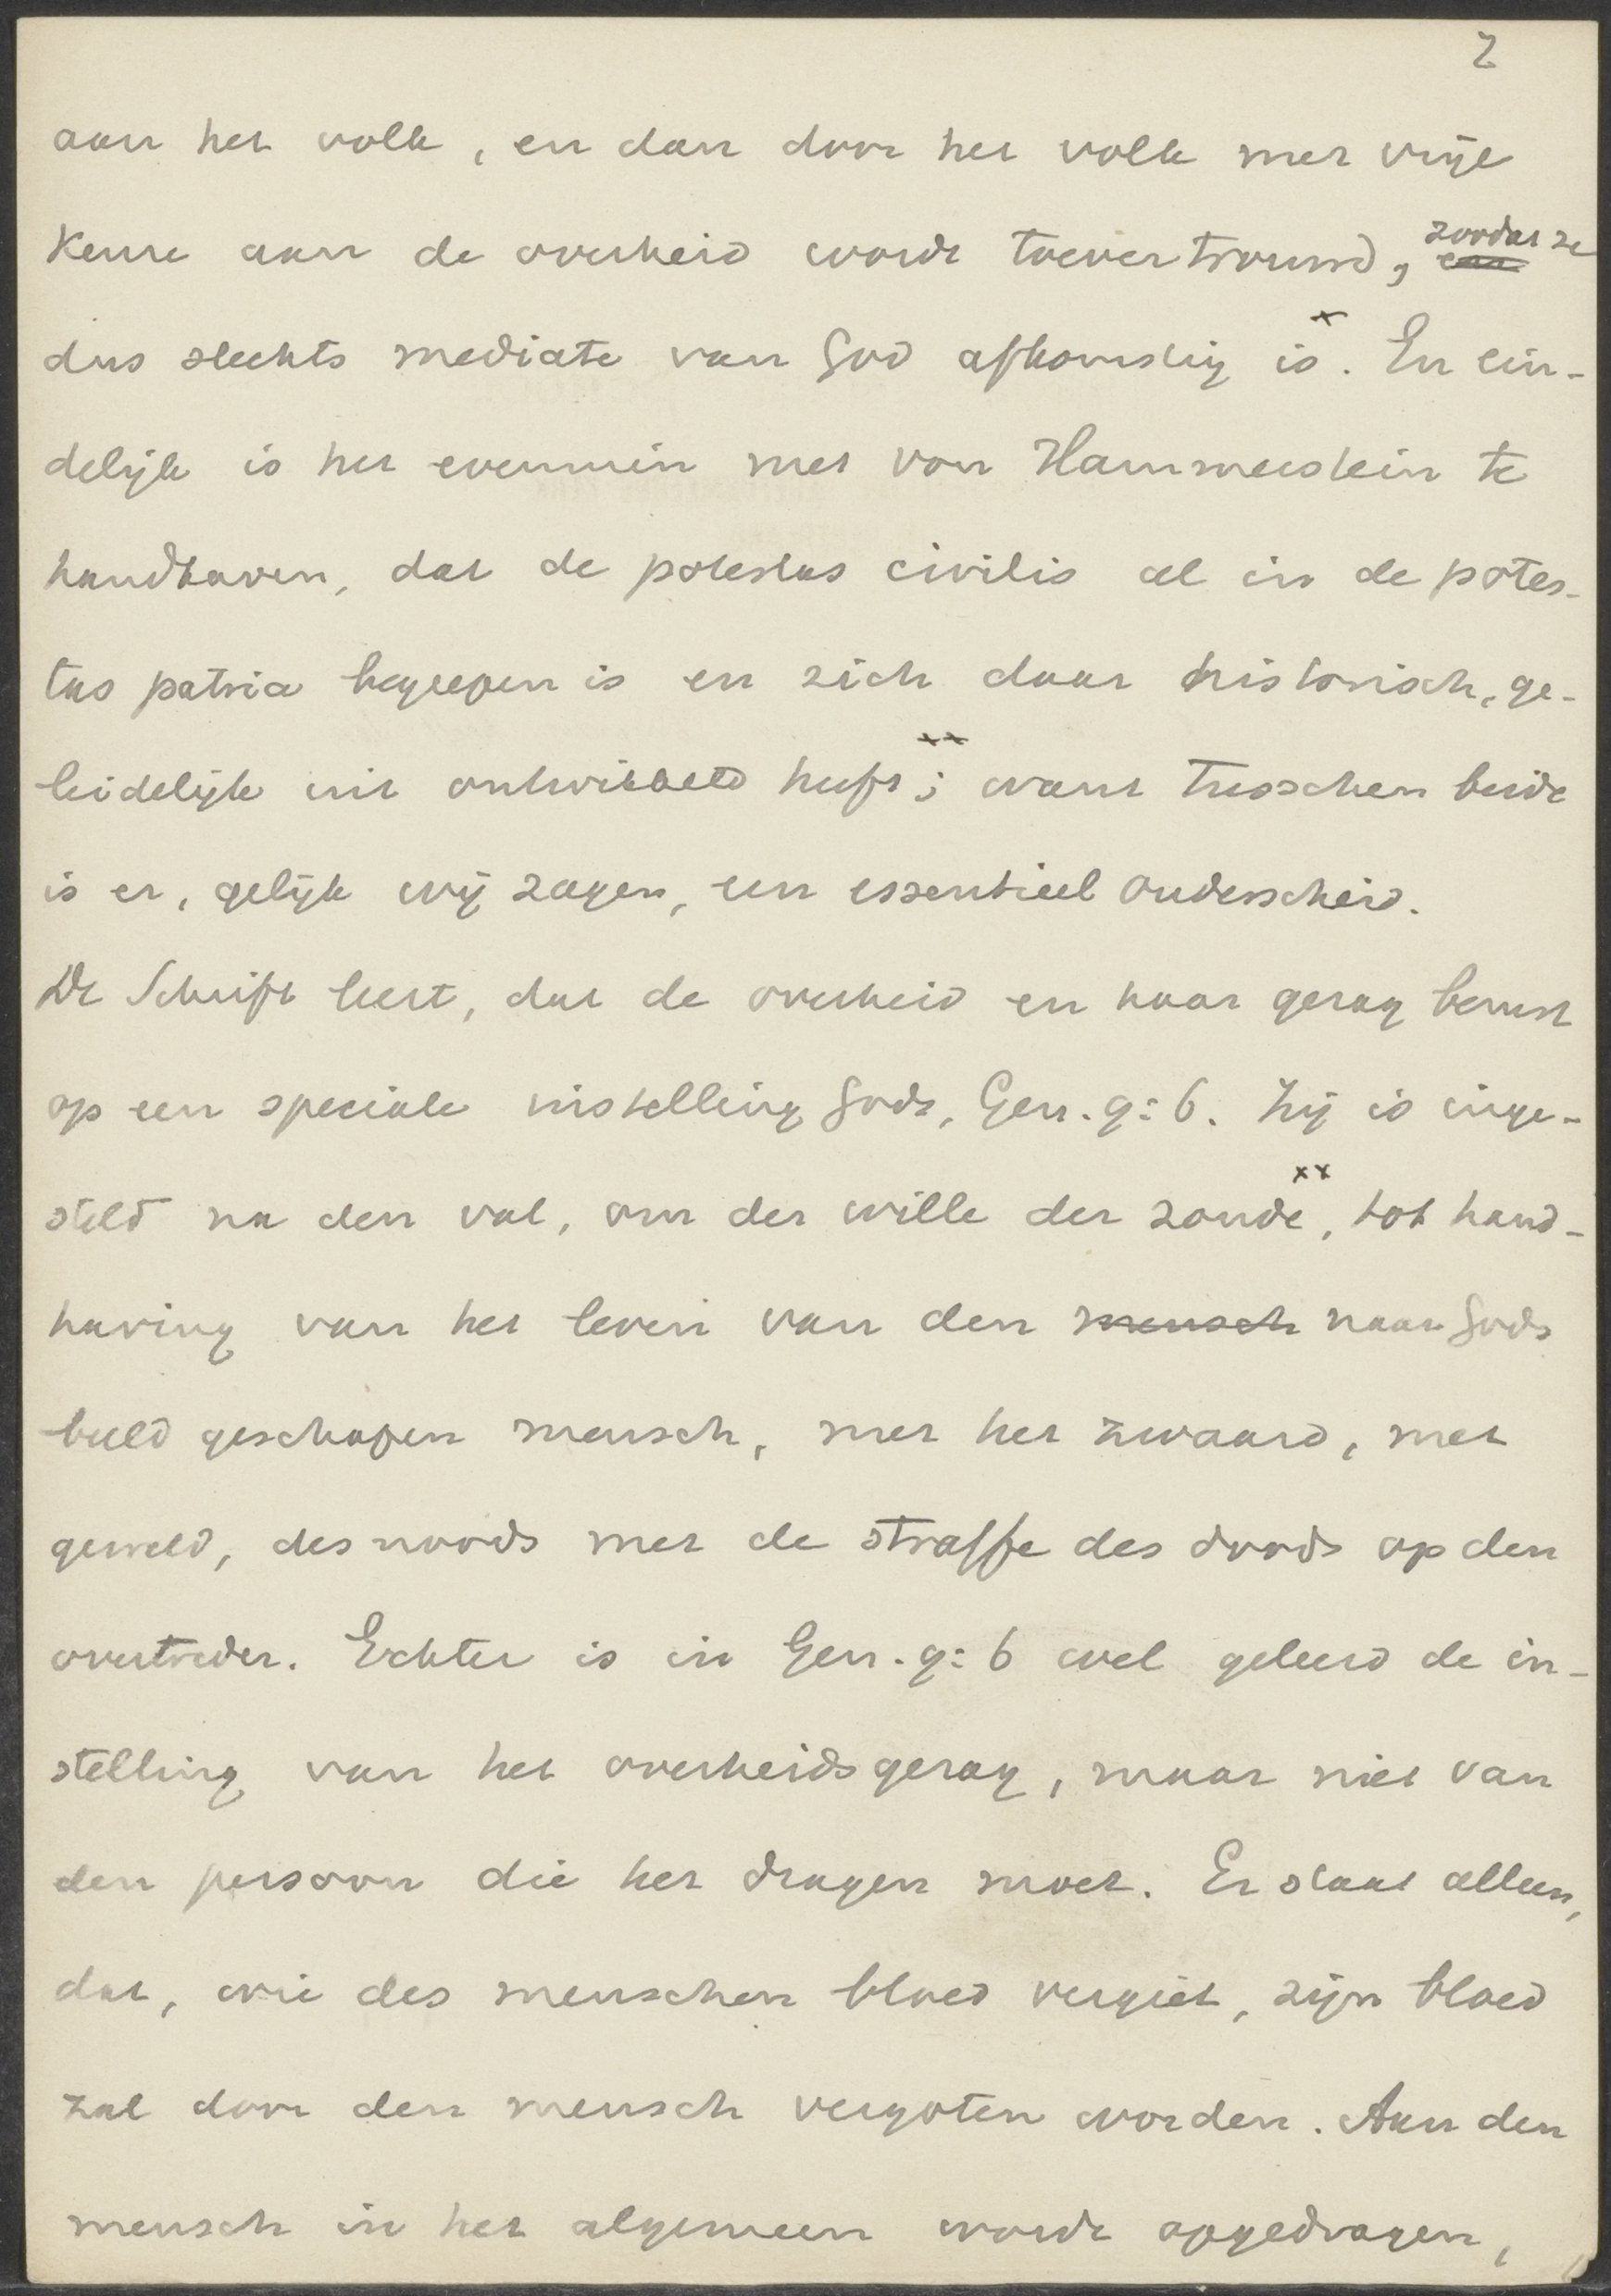 2
aan het volk, en dan door het volk met vrije
keuze aan de overheid wordt toevertrouwd, zoodat ze
dus slechts mediate van God afkomstig is ˣ. En ein-
delijk is het evenmin met von Hammerstein te
handhaven, dat de potestas civilis al in de potes-
tas patria begrepen is en zich daar historisch, ge-
leidelijk uit ontwikkeld heeft ˣˣ; want tusschen beide
is er, gelijk wij zagen, een essentieel onderscheid.
De Schrift leert, dat de overheid en haar gezag berust
op een speciale instelling Gods, Gen. 9:6. Zij is inge-
steld na den val, om der wille der zonde ˣˣ, tot hand-
having van het leven van den mensch naar Gods
beeld geschapen mensch, met het zwaard, met
geweld, desnoods met de straffe des doods op den
overtreder. Echter is in Gen. 9:6 wel geleerd de in-
stelling van het overheidsgezag, maar niet van
den persoon die het dragen moet. Er staat alleen,
dat, wie des menschen bloed vergiet, zijn bloed
zal door den mensch vergoten worden. Aan den
mensch in het algemeen wordt opgedragen,